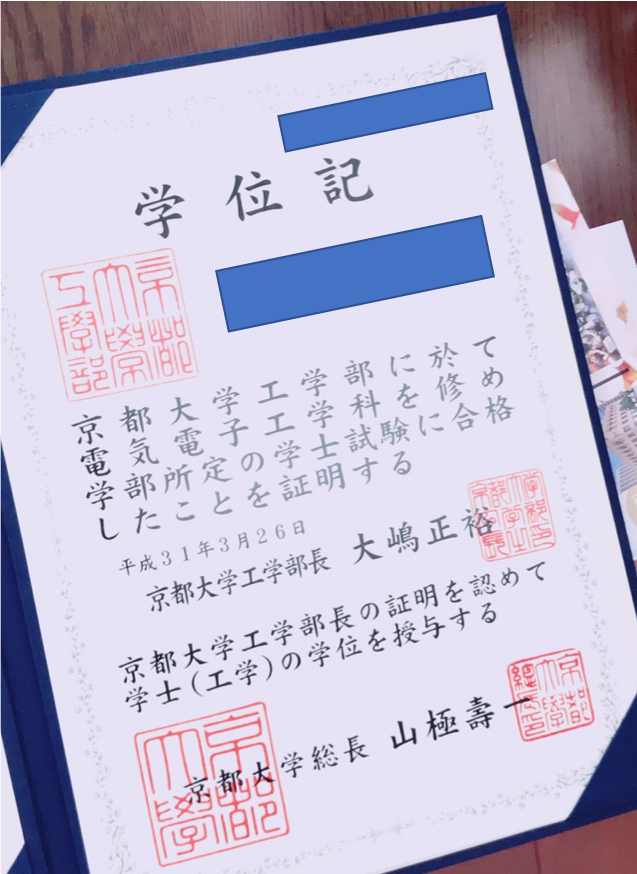 学位記
京都大学工学部に於て
電気電子工学科を修め
学部所定の学士試験に合格
したことを証明する
平成31年3月26日
京都大学工学部長 大嶋正裕
京都大学工学部長の証明を認めて
学士(工学)の学位を授与する
京都大学総長 山極壽一
京都大學工學部
京都大學